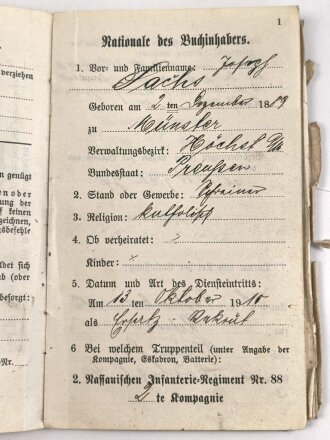 1
verziehen
Nationale des Buchinhabers.
1. Vor- und Familienname: Joseph
Sachs
Geboren am 2 ten Dezember 1889
zu Münster
Verwaltungsbezirk: Höchst a/M
Bundesstaat: Preußen
2. Stand oder Gewerbe: Schreiner
3. Religion: katholisch
4. Ob verheiratet: -
Kinder: -
5. Datum und Art des Diensteintritts:
Am 13. ten Oktober 1910
als Ersatz Rekrut
6 Bei welchem Truppenteil (unter Angabe der
Kompagnie, Eskadron, Batterie):
2. Nassauischen Infanterie-Regiment Nr. 88
2 te Kompagnie